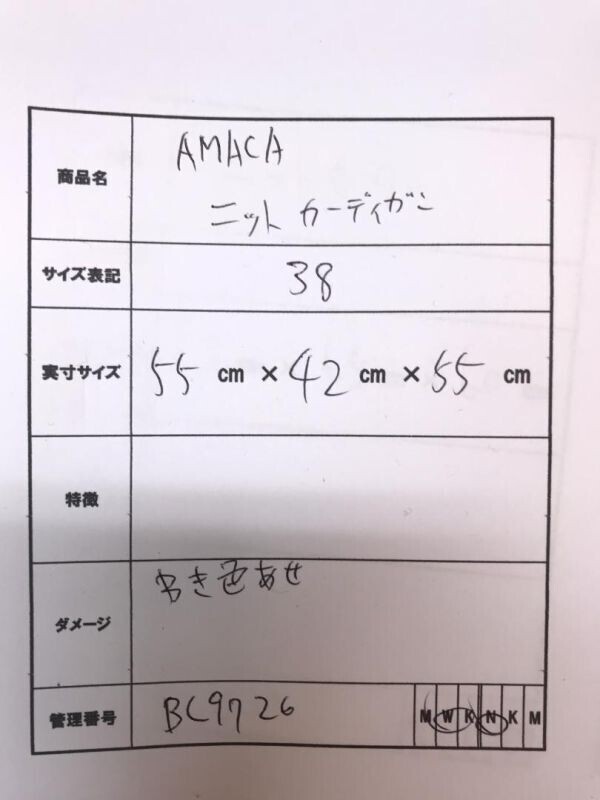 商品名
AMACA
ニット カーディガン
サイズ表記
38
実寸サイズ
55 cm × 42 cm × 55 cm
特徴
ダメージ
き色あせ
管理番号
BC9726
M W K N K M